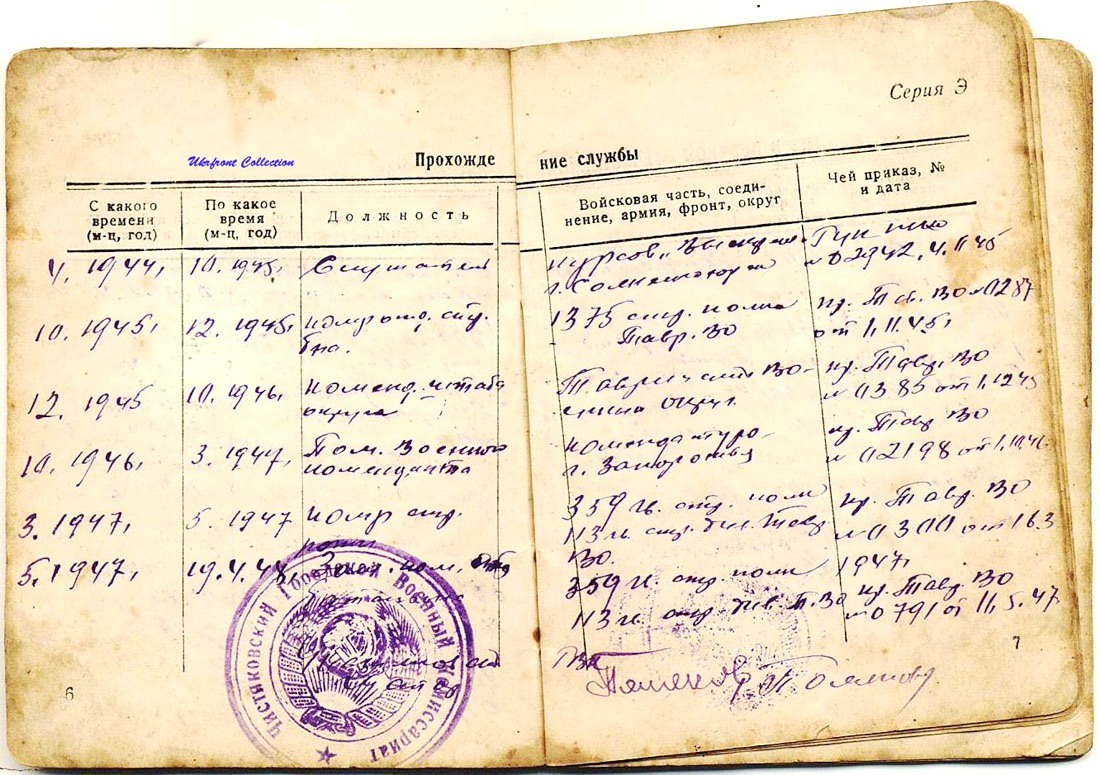 Серия Э
Ukrfront Collection
Прохождение службы
С какого времени (м-ц, год)
По какое время (м-ц, год)
Должность
Войсковая часть, соеди-
нение, армия, фронт, округ
Чей приказ, №
и дата
4. 1944, 10. 1945, Слушатель курсов „Выстрел“
г. Солнечногорск № 02342, 4.11.45
10. 1945, 12. 1945, 1375 стр. полка пр. Тав. ВО № 0287
бна. Тавр. ВО от 1.11.45,
12. 1945 10. 1946, Коменд. штаба Таврический Во- пр. Тавр. ВО
округа енный округ. № 0385 от 1.12.45
10. 1946, 3. 1947, Пом. Военного комендатура пр. Тавр ВО
коменданта г. Запорожья № 02198 от 1.10.46
3. 1947, 5. 1947 Комр стр. 359 гв. стр. полк пр. Тавр. ВО
роты 13 гв. стр. див. Тавр № 0300 от 16.3
ВО. 1947,
5. 1947, 19.4.48, 359 гв. стр. полк пр. Тавр. ВО
13 гв. стр. див. Т. ВО № 0791 от 11.5.47
Чистяковский Городской Военный Комиссариат
6
7